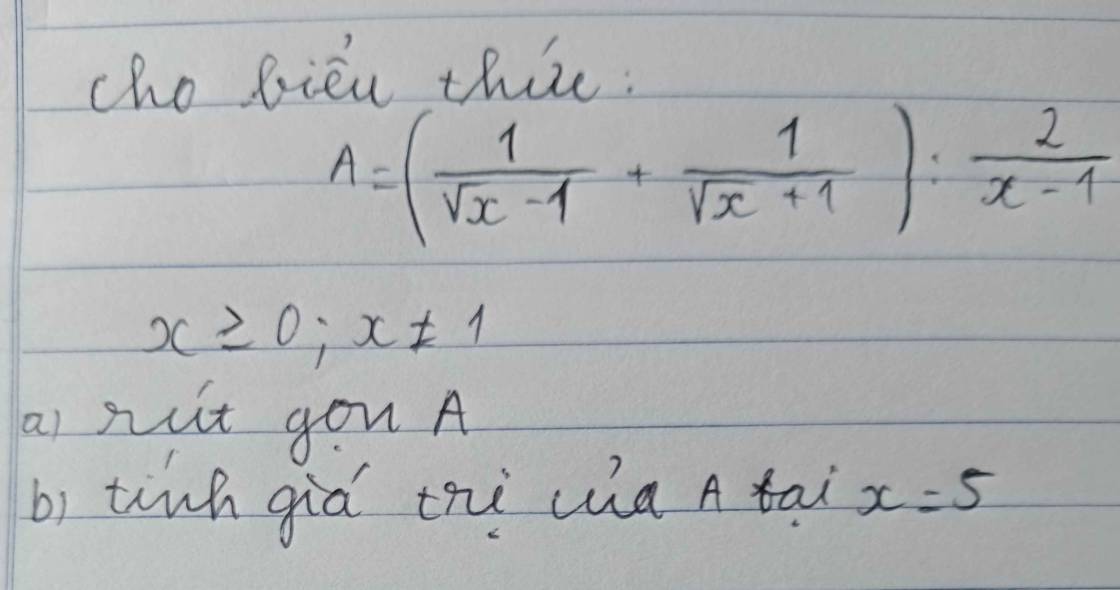 cho biểu thức:
A = (1/(√x - 1) + 1/(√x + 1)) : 2/(x - 1)
x ≥ 0; x ≠ 1
a) rút gọn A
b) tính giá trị của A tại x = 5